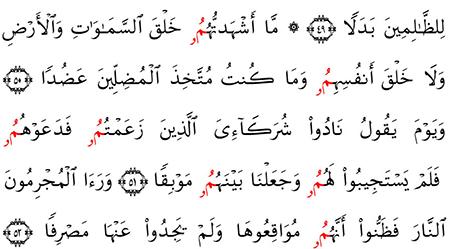 لِلظَّـٰلِمِينَ بَدَلًا ﴿٤٩﴾ ۞ مَّا أَشْهَدتُّهُمُۥ خَلْقَ ٱلسَّمَـٰوَٰتِ وَٱلْأَرْضِ
وَلَا خَلْقَ أَنفُسِهِمُۥ وَمَا كُنتُ مُتَّخِذَ ٱلْمُضِلِّينَ عَضُدًا ﴿٥٠﴾
وَيَوْمَ يَقُولُ نَادُوا۟ شُرَكَآءِىَ ٱلَّذِينَ زَعَمْتُمُۥ فَدَعَوْهُمُۥ
فَلَمْ يَسْتَجِيبُوا۟ لَهُمُۥ وَجَعَلْنَا بَيْنَهُمُۥ مَوْبِقًا ﴿٥١﴾ وَرَءَا ٱلْمُجْرِمُونَ
ٱلنَّارَ فَظَنُّوٓا۟ أَنَّهُمُۥ مُوَاقِعُوهَا وَلَمْ يَجِدُوا۟ عَنْهَا مَصْرِفًا ﴿٥٢﴾